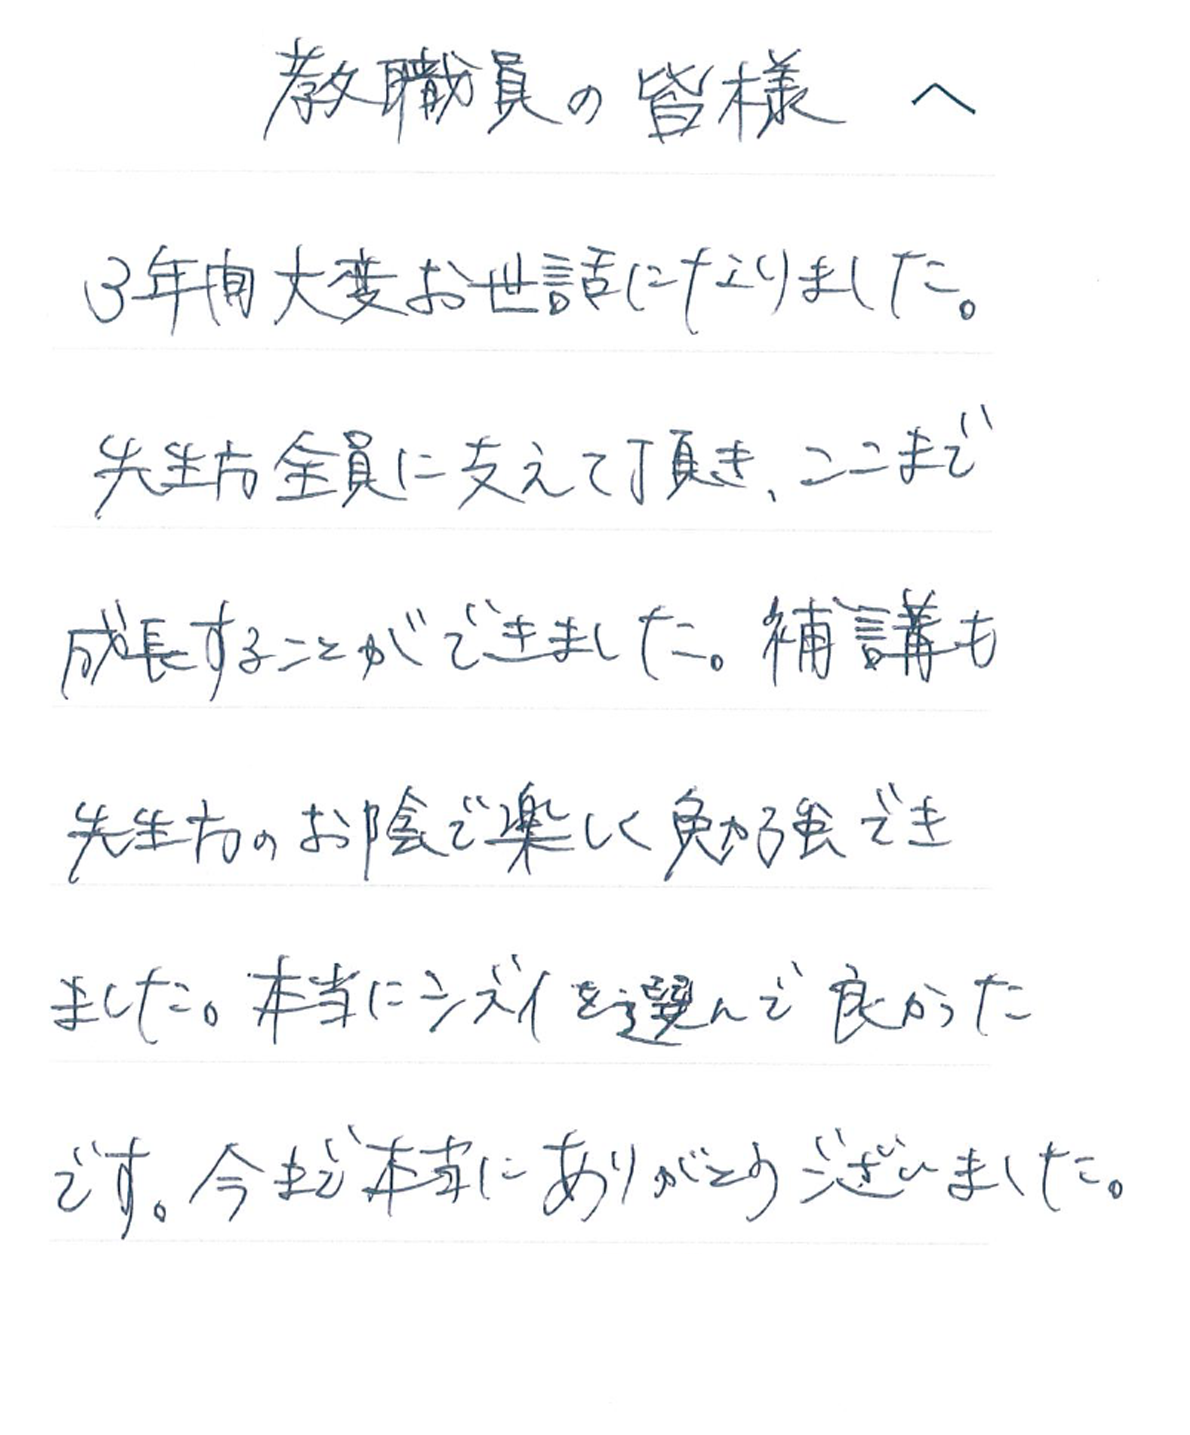 教職員の皆様 へ
3年間大変お世話になりました。
先生方全員に支えて頂き、ここまで
成長することができました。補講も
先生方のお陰で楽しく勉強でき
ました。本当にシズイを選んで良かった
です。今まで本当にありがとうございました。